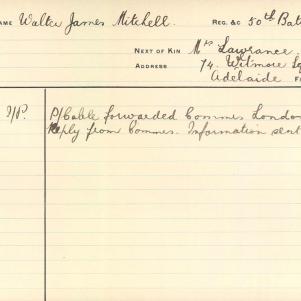 NAME Walter James Mitchell. REG. &C 50th Bat
NEXT OF KIN Mrs Lawrance.
ADDRESS 74. Witmore Sq
Adelaide
I/P. P/Cable forwarded Commes London
Reply from Commes. Information sent